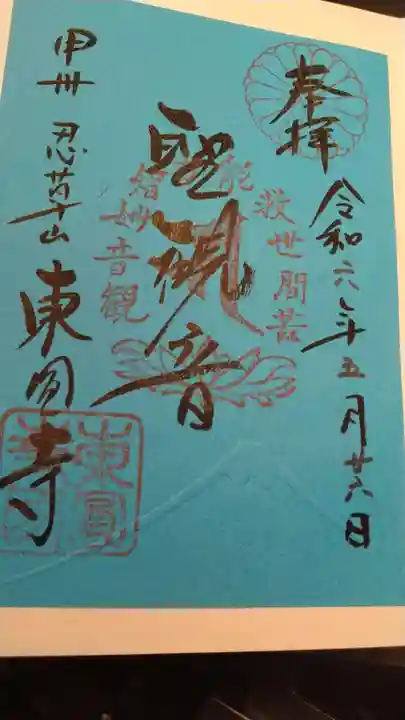 奉拝
令和六年五月廿八日
救世間苦
聖観音
妙音観
甲州 忍草山 東圓寺
東圓